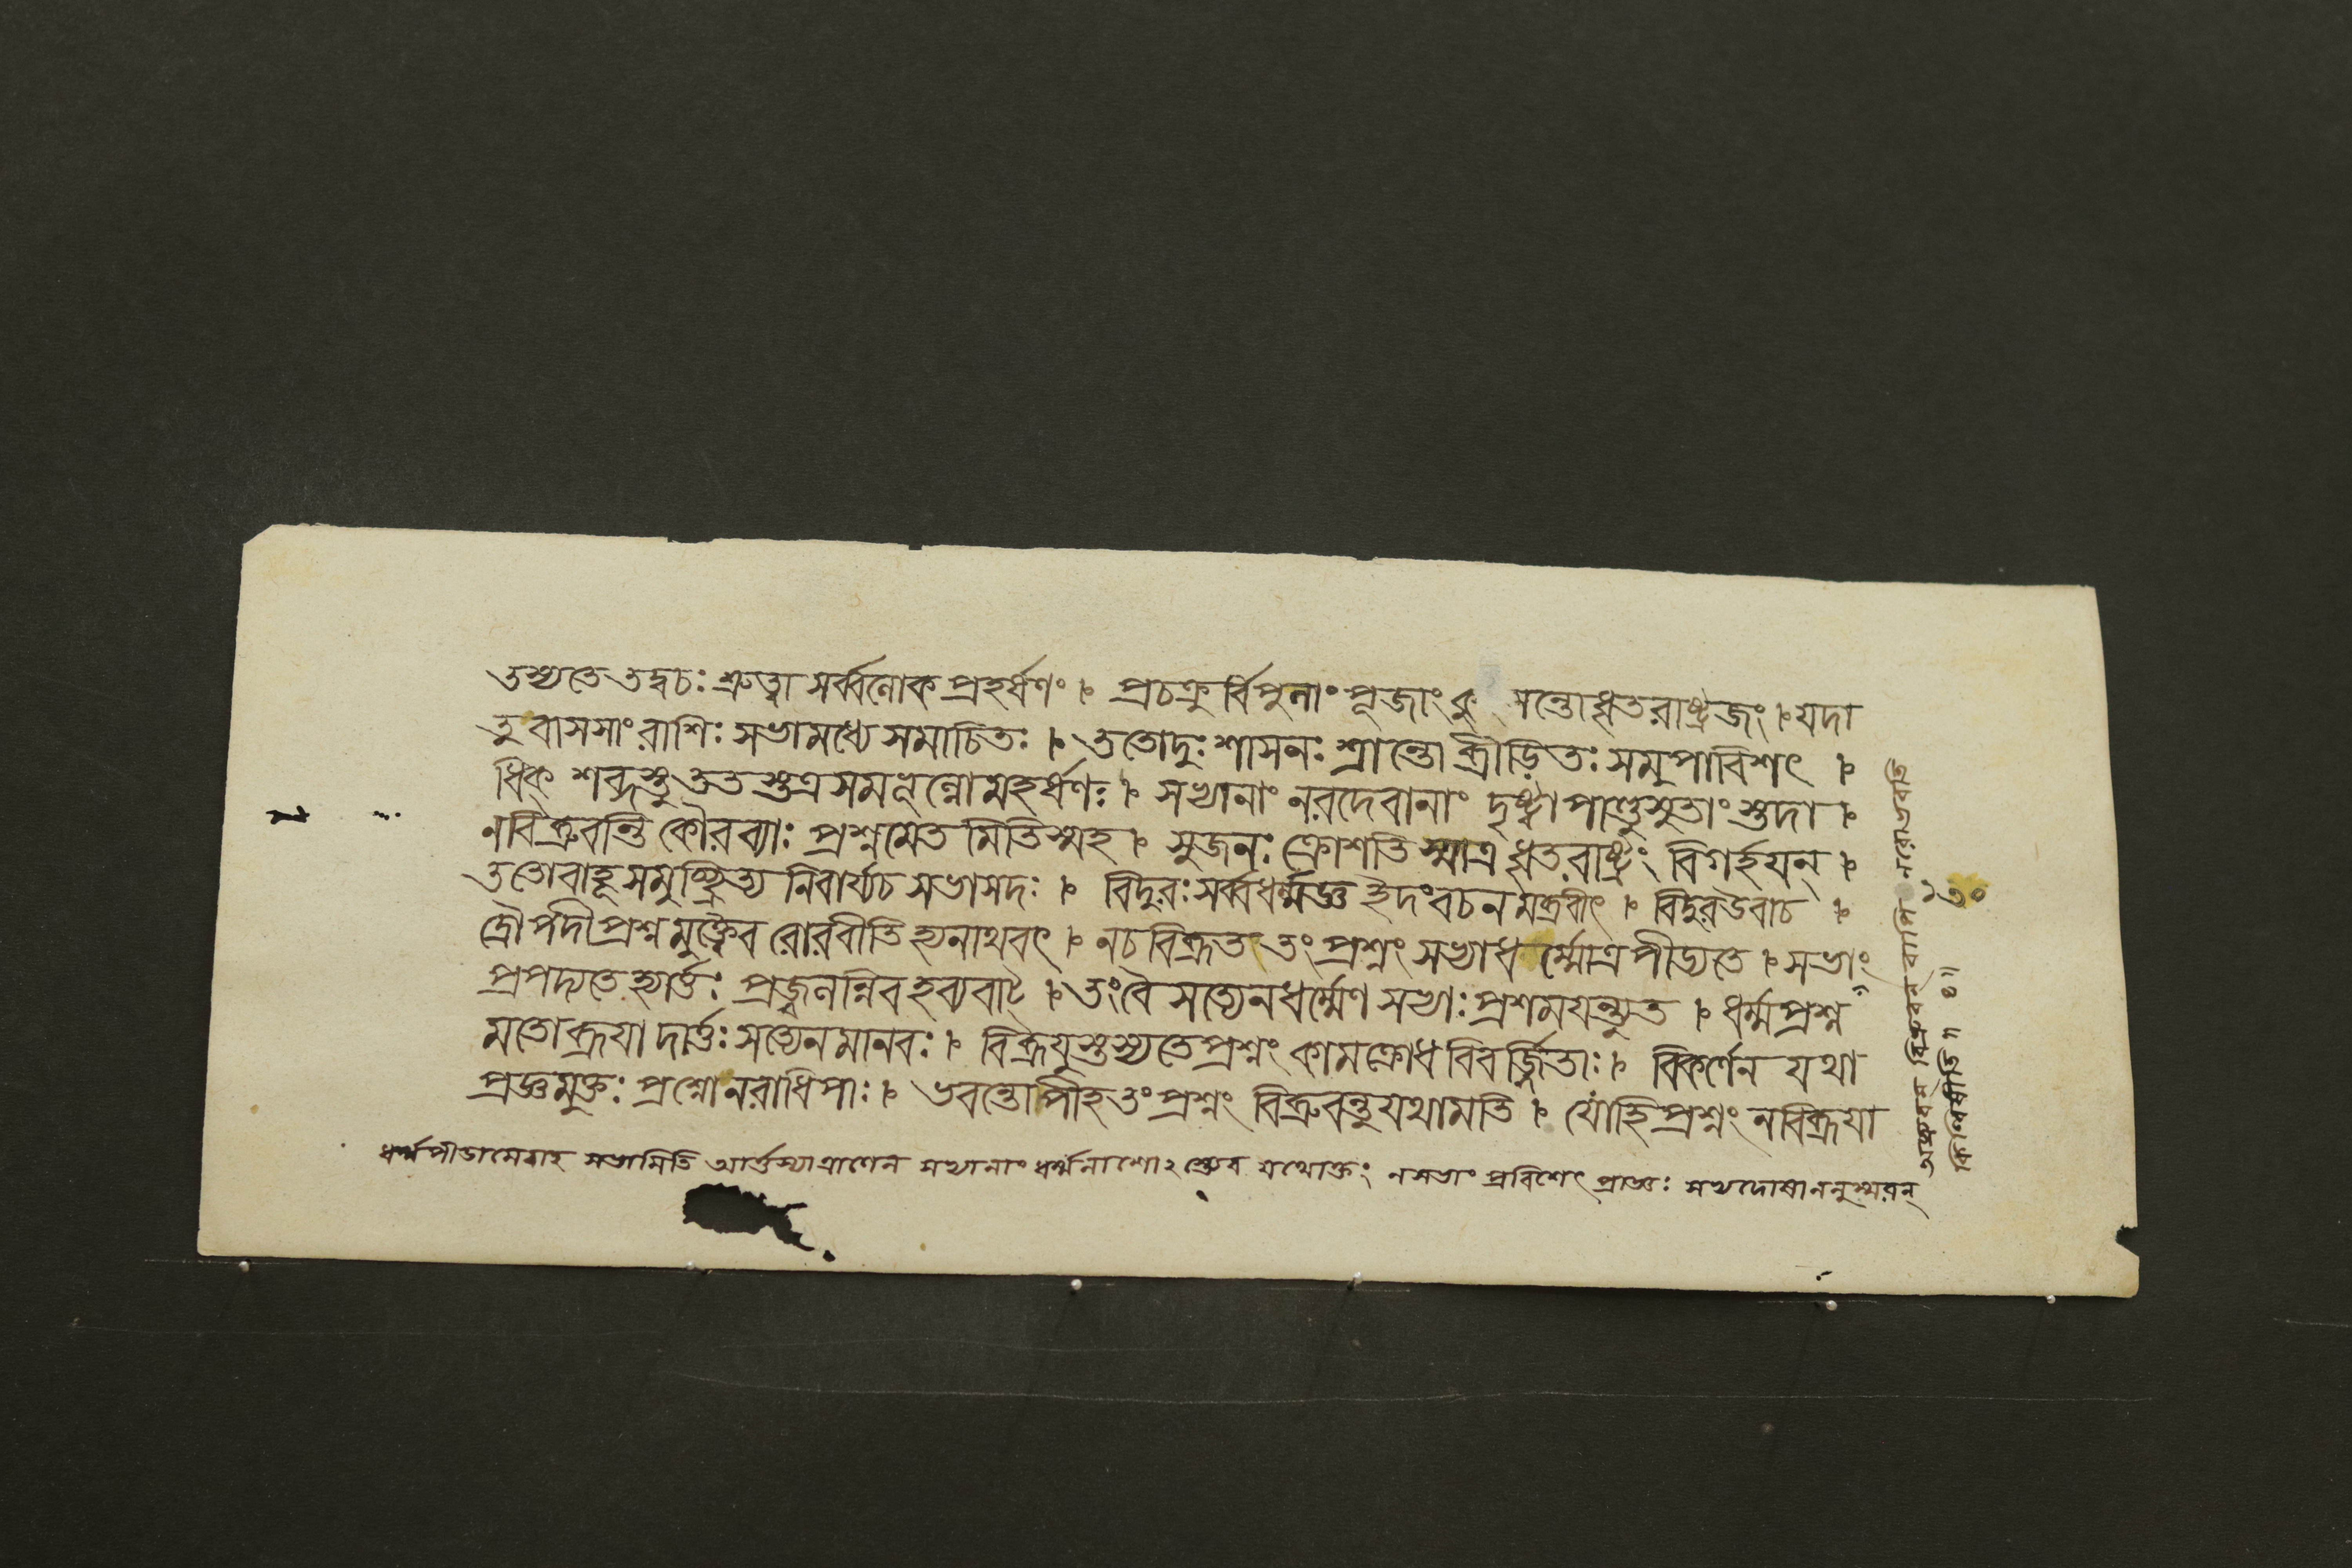 তস্যতেতদ্বচঃ শ্রুত্বা সর্ব্বলোকপ্রহর্ষণং । প্রচক্রুর্বিপুলাং পূজাং কু সন্তোধৃতরাষ্ট্রজং । যদা
তুবাসসাংরাশিঃ সভামধ্যে সমাচিতঃ । ততোদুঃশাসনঃ শ্রান্তো ব্রীড়িতঃ সমুপাবিশৎ ।
ধিক্ শব্দস্তুততস্তত্রসমভূল্লোমহর্ষণঃ । সভ্যানাং নরদেবানাং দৃষ্ট্বা পাণ্ডুসুতাংস্তদা ।
নবিব্রুবন্তি কৌরব্যাঃ প্রশ্নমেতমিতিস্মহ । সুজনঃ ক্রোশতিস্মাত্র ধৃতরাষ্ট্রং বিগর্হয়ন্ ।
ততোবাহূসমুচ্ছ্রিত্য নিবার্য্যচ সভাসদঃ । বিদুরঃ সর্ব্বধর্ম্মজ্ঞ ইদংবচনমব্রবীৎ । বিদুরউবাচ ।
দ্রৌপদীপ্রশ্নমুক্ত্বৈব রোরবীতি হ্যনাথবৎ । নচ বিব্রূত তং প্রশ্নং সভ্যাধর্ম্মোত্র পীড্যতে । সভাং
প্রপদ্যতে হ্যার্ত্তঃ প্রজ্বলন্নিব হব্যবাট্ । তংবৈ সত্যেনধর্ম্মেণ সভ্যাঃ প্রশময়ন্ত্যুত । ধর্ম্মপ্রশ্ন
মতোব্রূয়াদার্ত্তঃ সত্যেনমানবঃ । বিব্রূয়ুস্তস্যতেপ্রশ্নং কামক্রোধবিবর্জ্জিতাঃ । বিকর্ণেন যথা
প্রজ্ঞমুক্তঃ প্রশ্নোনরাধিপাঃ । ভবন্তোপীহতংপ্রশ্নং বিব্রুবন্তুযথামতি । যোহিপ্রশ্নং নবিব্রূয়া
ধর্ম্মপীডামেবাহ সভামিতি আর্ত্তস্যাত্রাণেন সভ্যানাং ধর্ম্মনাশোঽস্ত্যেব যথোক্তং নসভাং প্রবিশেৎ প্রাজ্ঞঃ সভ্যদোষাননুস্মরন্
অব্রুবন্ বিব্রুবন্ বাপি নরোভবতি
কিল্বিষীতি॥ ৪॥
১৩০